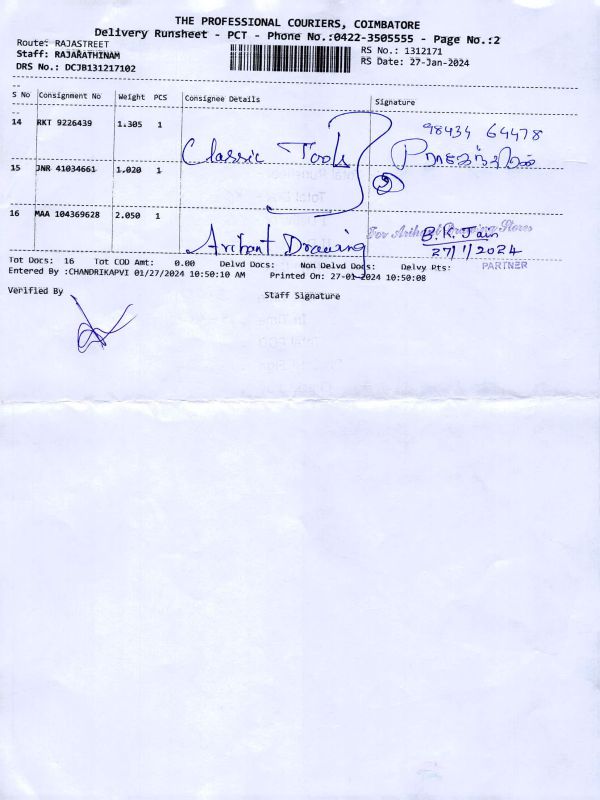 THE PROFESSIONAL COURIERS, COIMBATORE
Delivery Runsheet - PCT - Phone No.:0422-3505555 - Page No.:2
Route: RAJASTREET
Staff: RAJARATHINAM
DRS No.: DCJB131217102
RS No.: 1312171
RS Date: 27-Jan-2024
S No Consignment No Weight PCS Consignee Details Signature
14 RKT 9226439 1.305 1
98434 64478
Classic Tools
15 JNR 41034661 1.020 1
2
16 MAA 104369628 2.050 1
For Arihant Drawing Stores
B.K. Jain
Arihant Drawing
27/1/2024
PARTNER
Tot Docs: 16 Tot COD Amt: 0.00 Delvd Docs: Non Delvd Docs: Delvy Pts:
Entered By :CHANDRIKAPVI 01/27/2024 10:50:10 AM Printed On: 27-01-2024 10:50:08
Verified By
Staff Signature